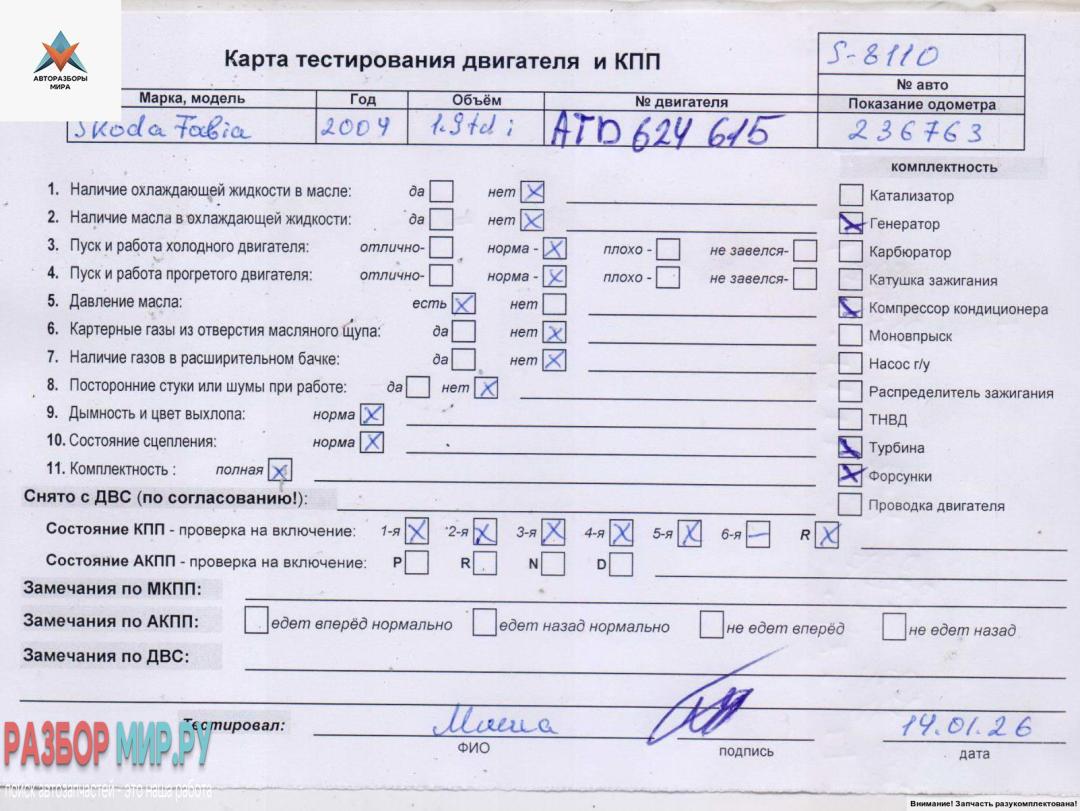 АВТОРАЗБОРЫ
МИРА
Карта тестирования двигателя и КПП
S-8110
№ авто
Марка, модель Год Объём № двигателя Показание одометра
Skoda Fabia 2004 1.9td i ATD 624 615 236763
комплектность
1. Наличие охлаждающей жидкости в масле: да нет X
Катализатор
2. Наличие масла в охлаждающей жидкости: да нет X
Генератор X
3. Пуск и работа холодного двигателя: отлично- норма - X плохо - не завелся-
Карбюратор
4. Пуск и работа прогретого двигателя: отлично- норма - X плохо - не завелся-
Катушка зажигания
5. Давление масла: есть X нет
Компрессор кондиционера X
6. Картерные газы из отверстия масляного щупа: да нет X
Моновпрыск
7. Наличие газов в расширительном бачке: да нет X
Насос г/у
8. Посторонние стуки или шумы при работе: да нет X
Распределитель зажигания
9. Дымность и цвет выхлопа: норма X
ТНВД
10. Состояние сцепления: норма X
Турбина X
11. Комплектность : полная X
Форсунки X
Снято с ДВС (по согласованию!):
Проводка двигателя
Состояние КПП - проверка на включение: 1-я X 2-я X 3-я X 4-я X 5-я X 6-я – R X
Состояние АКПП - проверка на включение: P R N D
Замечания по МКПП:
Замечания по АКПП: едет вперёд нормально едет назад нормально не едет вперёд не едет назад
Замечания по ДВС:
Тестировал: 14.01.26
ФИО подпись дата
РАЗБОР МИР.РУ
поиск автозапчастей - это наша работа
Внимание! Запчасть разукомплектована!